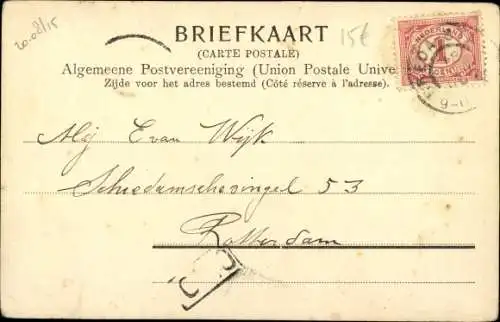 20.08/15
BRIEFKAART
15€
(CARTE POSTALE)
Algemeene Postvereeniging (Union Postale Unive
Zijde voor het adres bestemd (Côté réserve à l'adresse).
NEDERLAND
1
BREDA
9-10
Mej E van Wijk
Schiedamschesingel 53
Rotterdam